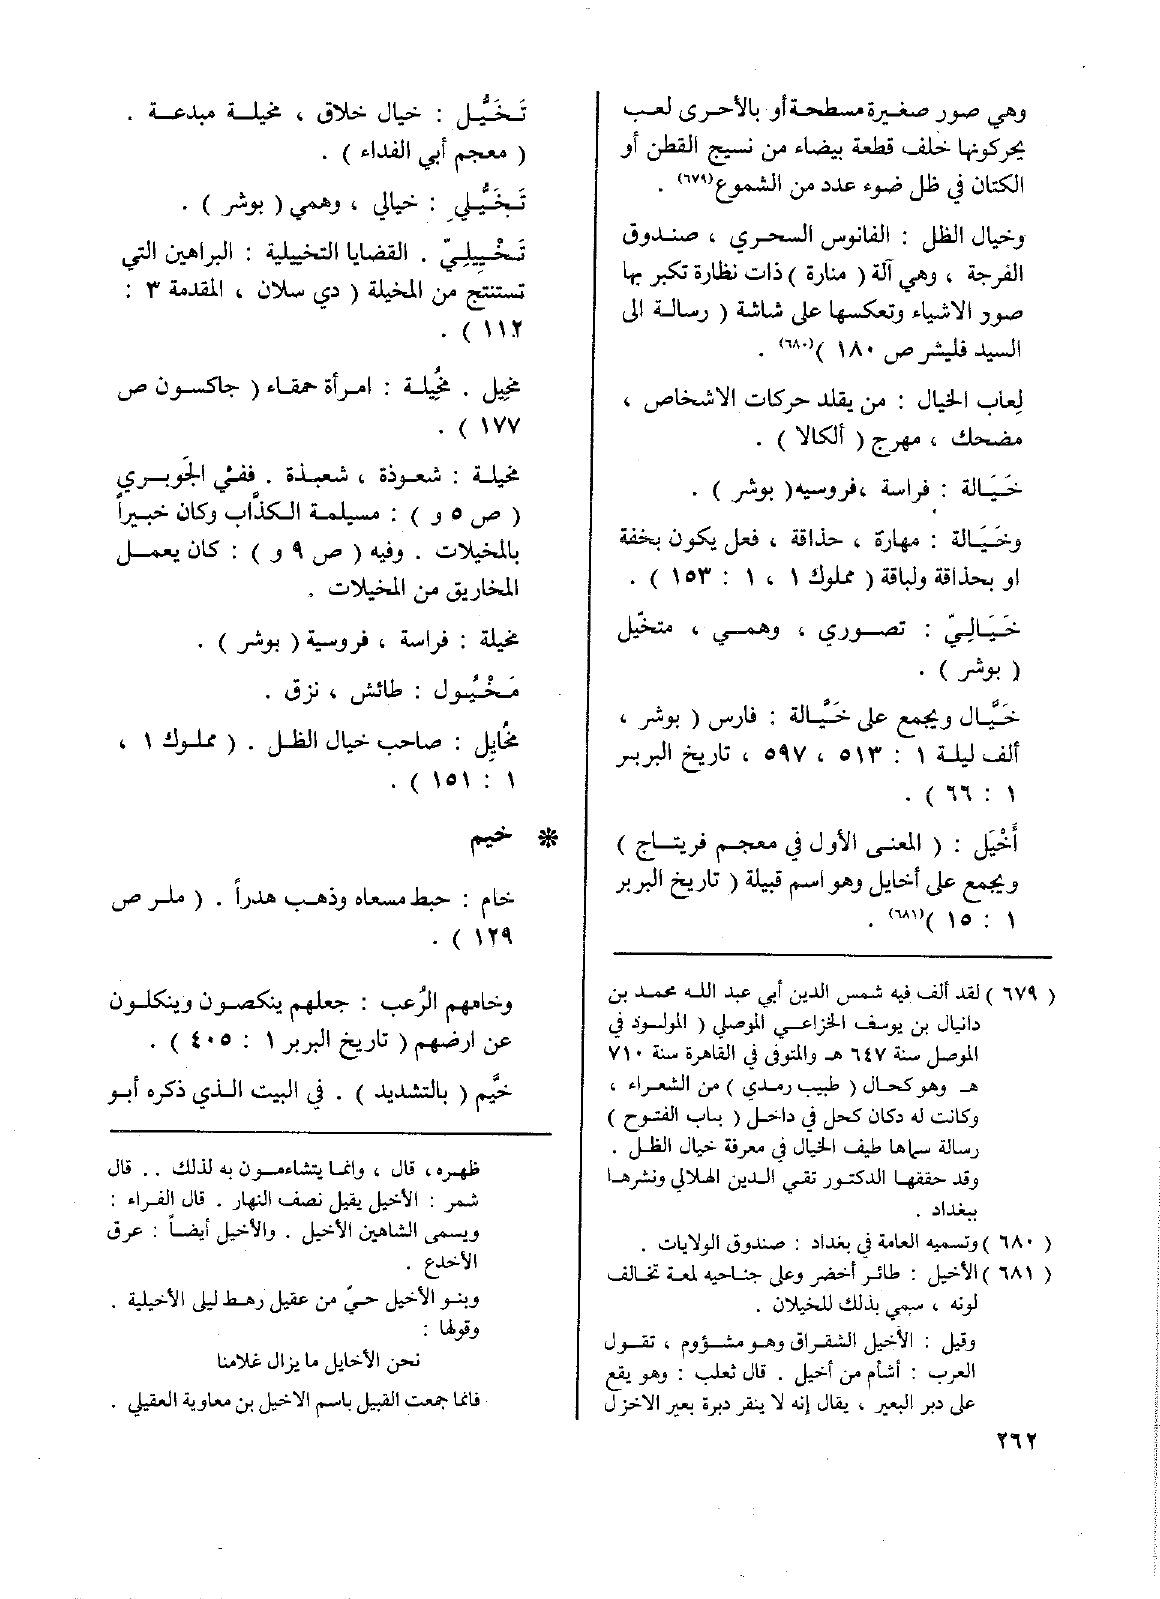 وهي صور صغيرة مسطحة أو بالأحرى لعب
يحركونها خلف قطعة بيضاء من نسيج القطن أو
الكتان في ظل ضوء عدد من الشموع(٦٧٩) .
وخيال الظل : الفانوس السحري ، صندوق
الفرجة ، وهي آلة ( منارة ) ذات نظارة تكبر بها
صور الاشياء وتعكسها على شاشة ( رسالة الى
السيد فليشر ص ١٨٠ )(٦٨٠) .
لعاب الخيال : من يقلد حركات الاشخاص ،
مضحك ، مهرج ( ألكالا ) .
خَيَالة : فراسة ،فروسيه( بوشر ) .
وخَيَالة : مهارة ، حذاقة ، فعل يكون بخفة
او بحذاقة ولباقة ( مملوك ١ ، ١ : ١٥٣ ) .
خَيَالِيّ : تصوري ، وهمي ، متخيّل
( بوشر ) .
خَيَّال ويجمع على خَيَّالة : فارس ( بوشر ،
ألف ليلة ١ : ٥١٣ ، ٥٩٧ ، تاريخ البربر
١ : ٦٦ ) .
أَخْيَل : ( المعنى الأول في معجم فريتاج )
ويجمع على أخايل وهو اسم قبيلة ( تاريخ البربر
١ : ١٥ )(٦٨١) .
( ٦٧٩ ) لقد ألف فيه شمس الدين أبي عبد الله محمد بن
دانيال بن يوسف الخزاعي الموصلي ( المولود في
الموصل سنة ٦٤٧ هـ والمتوفى في القاهرة سنة ٧١٠
هـ وهو كحال ( طبيب رمدي ) من الشعراء ،
وكانت له دكان كحل في داخل ( باب الفتوح )
رسالة سماها طيف الخيال في معرفة خيال الظل .
وقد حققها الدكتور تقي الدين الهلالي ونشرها
ببغداد .
( ٦٨٠ ) وتسميه العامة في بغداد : صندوق الولايات .
( ٦٨١ ) الأخيل : طائر أخضر وعلى جناحيه لمعة تخالف
لونه ، سمي بذلك للخيلان .
وقيل : الأخيل الشقراق وهو مشؤوم ، تقول
العرب : أشأم من أخيل . قال ثعلب : وهو يقع
على دبر البعير ، يقال إنه لا ينقر دبرة بعير الاخزل
تَخَيُّل : خيال خلاق ، مخيلة مبدعة .
( معجم أبي الفداء ) .
تَخَيُّلي : خيالي ، وهمي ( بوشر ) .
تَخْيِيلِيّ . القضايا التخييلية : البراهين التي
تستنتج من المخيلة ( دي سلان ، المقدمة ٣ :
١١٢ ) .
مخيل . مُخيلة : امرأة حمقاء ( جاكسون ص
١٧٧ ) .
مخيلة : شعوذة ، شعبذة . ففي الجَوبري
( ص ٥ و ) : مسيلمة الكذّاب وكان خبيراً
بالمخيلات . وفيه ( ص ٩ و ) : كان يعمل
المخاريق من المخيلات .
مخيلة : فراسة ، فروسية ( بوشر ) .
مَخْيُول : طائش ، نزق .
مُخايِل : صاحب خيال الظل . ( مملوك ١ ،
١ : ١٥١ ) .
* خيم
خام : حبط مسعاه وذهب هدراً . ( ملر ص
١٢٩ ) .
وخامهم الرُعب : جعلهم ينكصون وينكلون
عن ارضهم ( تاريخ البربر ١ : ٤٠٥ ) .
خيَّم ( بالتشديد ) . في البيت الذي ذكره أبو
ظهره، قال ، وانما يتشاءمون به لذلك .. قال
شمر : الأخيل يقيل نصف النهار . قال الفراء :
ويسمى الشاهين الأخيل . والأخيل أيضاً : عرق
الأخدع .
وبنو الأخيل حيّ من عقيل رهط ليلى الأخيلية .
وقولها :
نحن الأخايل ما يزال غلامنا
فانما جمعت القبيل باسم الاخيل بن معاوية العقيلي .
٢٦٢